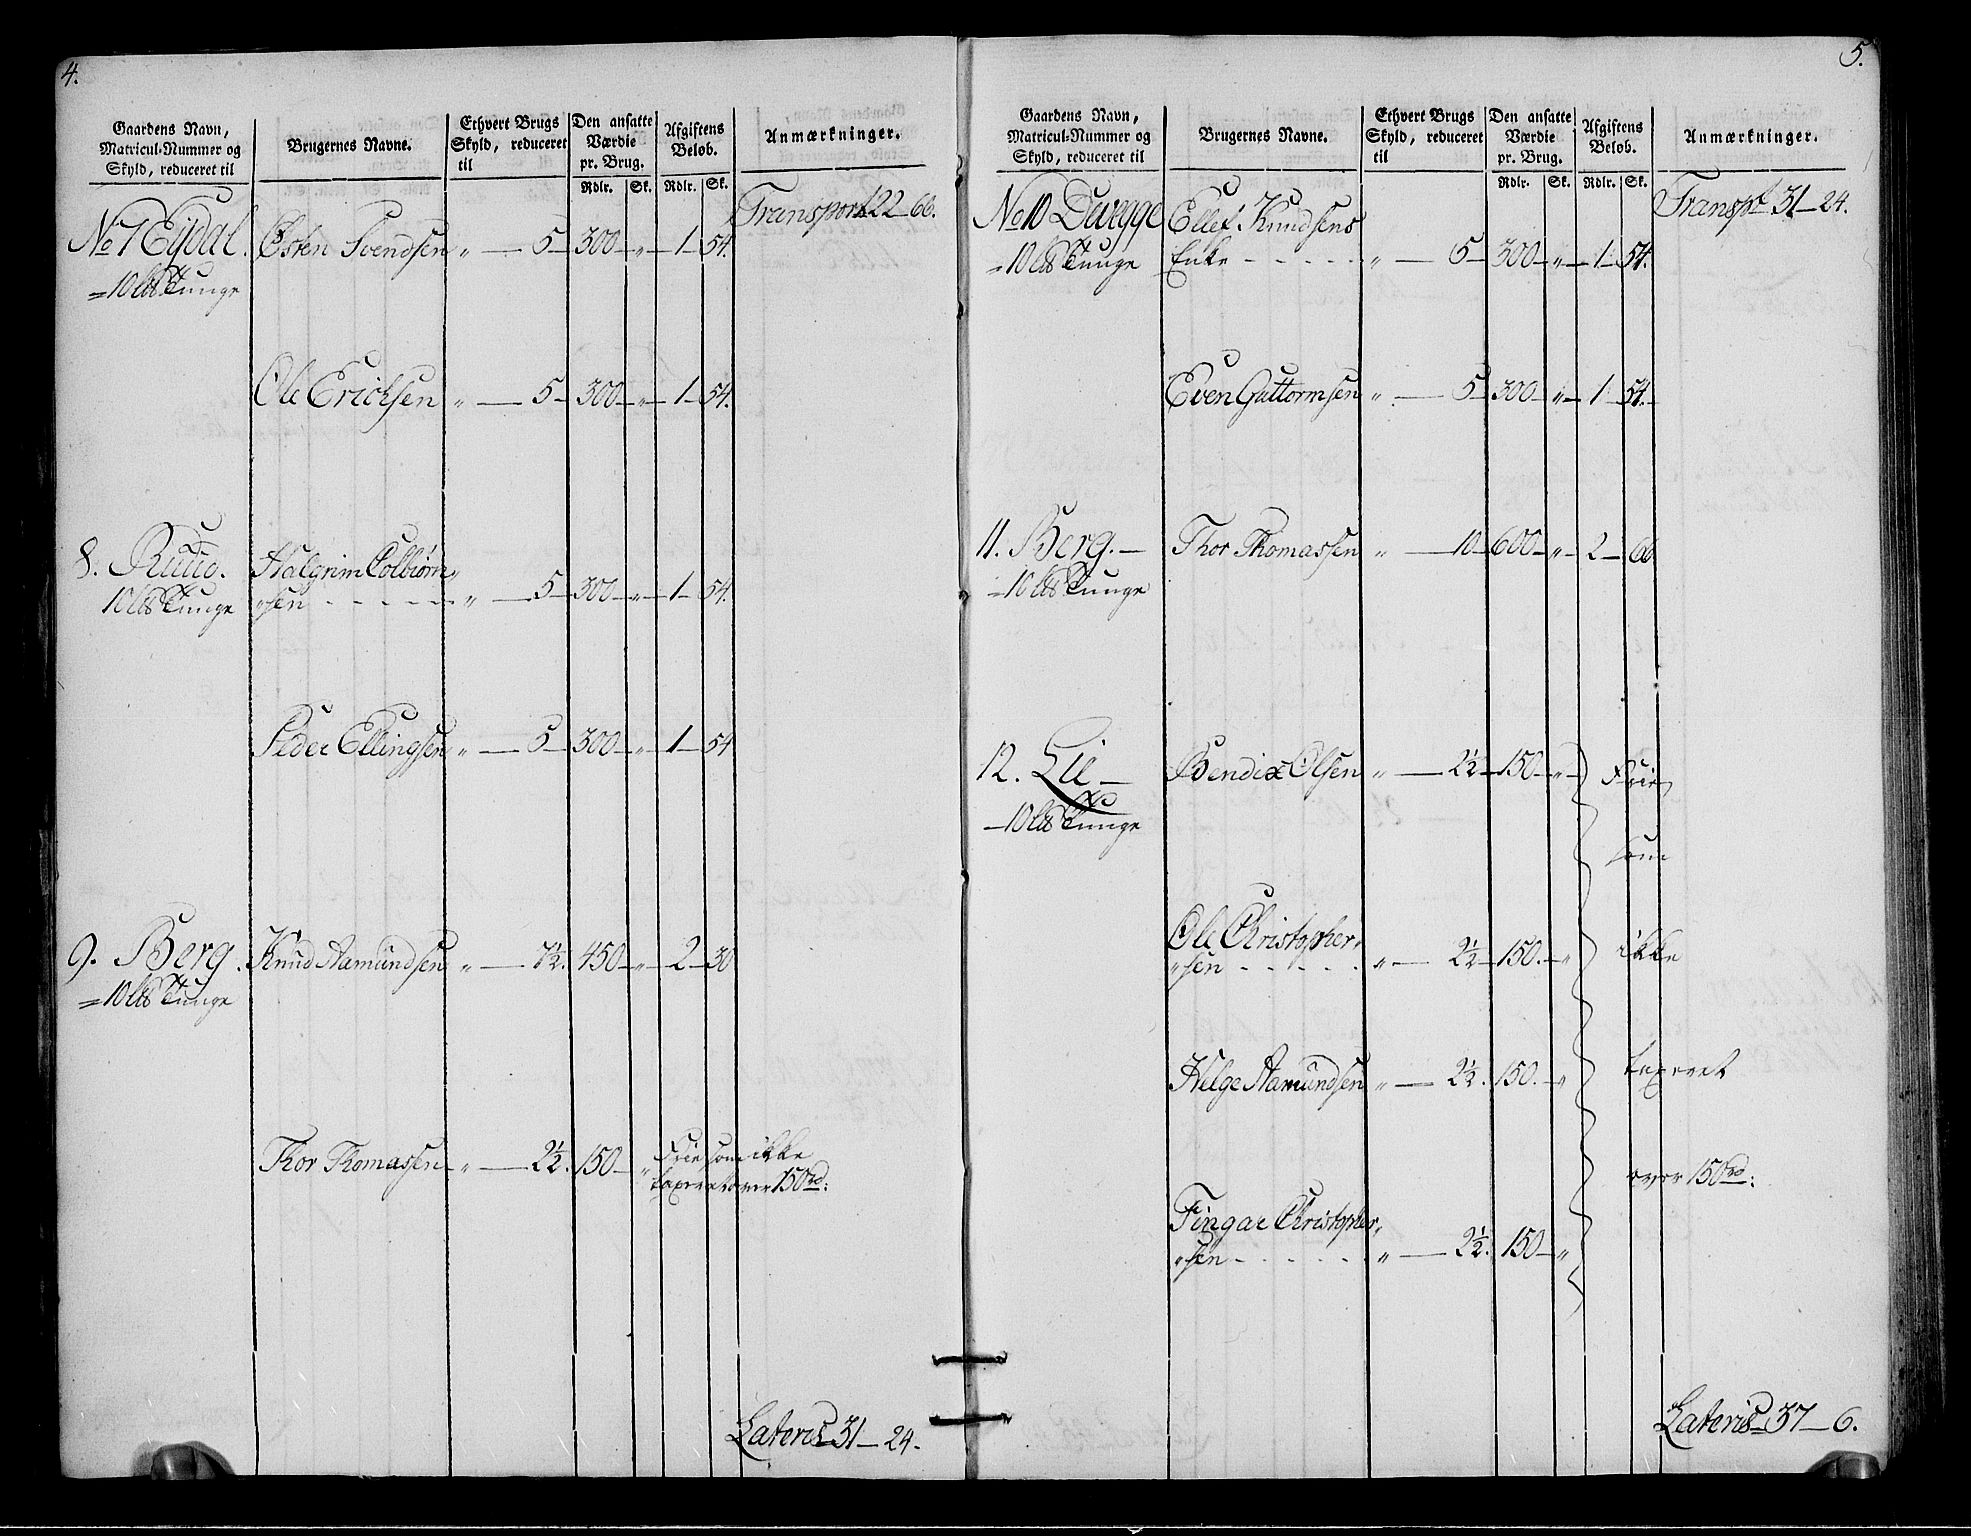 4.
Gaardens Navn, Matricul-Nummer og Skyld, reduceret til
Brugernes Navne.
Ethvert Brugs Skyld, reduceret til
Den ansatte Værdie pr. Brug.
Afgiftens Beløb.
Anmærkninger.
Rdlr. Sk. Rdlr. Sk.
Transport 22–66.
No 7 Eydal. Østen Svendsen „ — 5– 300– „– 1– 54.
=10 L℔ Tunge
Ole Erichsen „ — 5– 300– „– 1– 54.
8. Ruud. Halgrim Colbiørn„
10 L℔ Tunge „sen - - - - - „ — 5– 300– „– 1– 54.
Peder Ellingsen „ — 5– 300– „– 1– 54
9. Berg. Knud Aamundsen „ — 7½. 450– „– 2– 30
=10 L℔ Tunge
Thor Thomassen „ — 2½. 150– „ Frie som ikke
taxeret over 150 rd:
Lateris 31–24.
5.
Gaardens Navn, Matricul-Nummer og Skyld, reduceret til
Brugernes Navne.
Ethvert Brugs Skyld, reduceret til
Den ansatte Værdie pr. Brug.
Afgiftens Beløb.
Anmærkninger.
Rdlr. Sk. Rdlr. Sk.
Transpt 31–24.
No 10 Dwegge Ellef Knudsens
=10 L℔ Tunge Enke - - - - - „ — 5– 300– „– 1– 54.
Even Guttormsen „ — 5– 300– „– 1– 54.
11. Berg.– Thor Thomassen „ — 10– 600– „– 2– 66
=10 L℔ Tunge
12. Lie– Bendix Olsen „ — 2½– 150.– „– Frie
–10 L℔ Tunge
som
Ole Christopher„
„sen - - - - - „ — 2½– 150.– „ ikke
Helge Aamundsen „ — 2½. 150.– „ taxeret
over 150 rd:
Fingar Christopher„
„sen - - - - - „ — 2½. 150– „
Lateris 37–6.